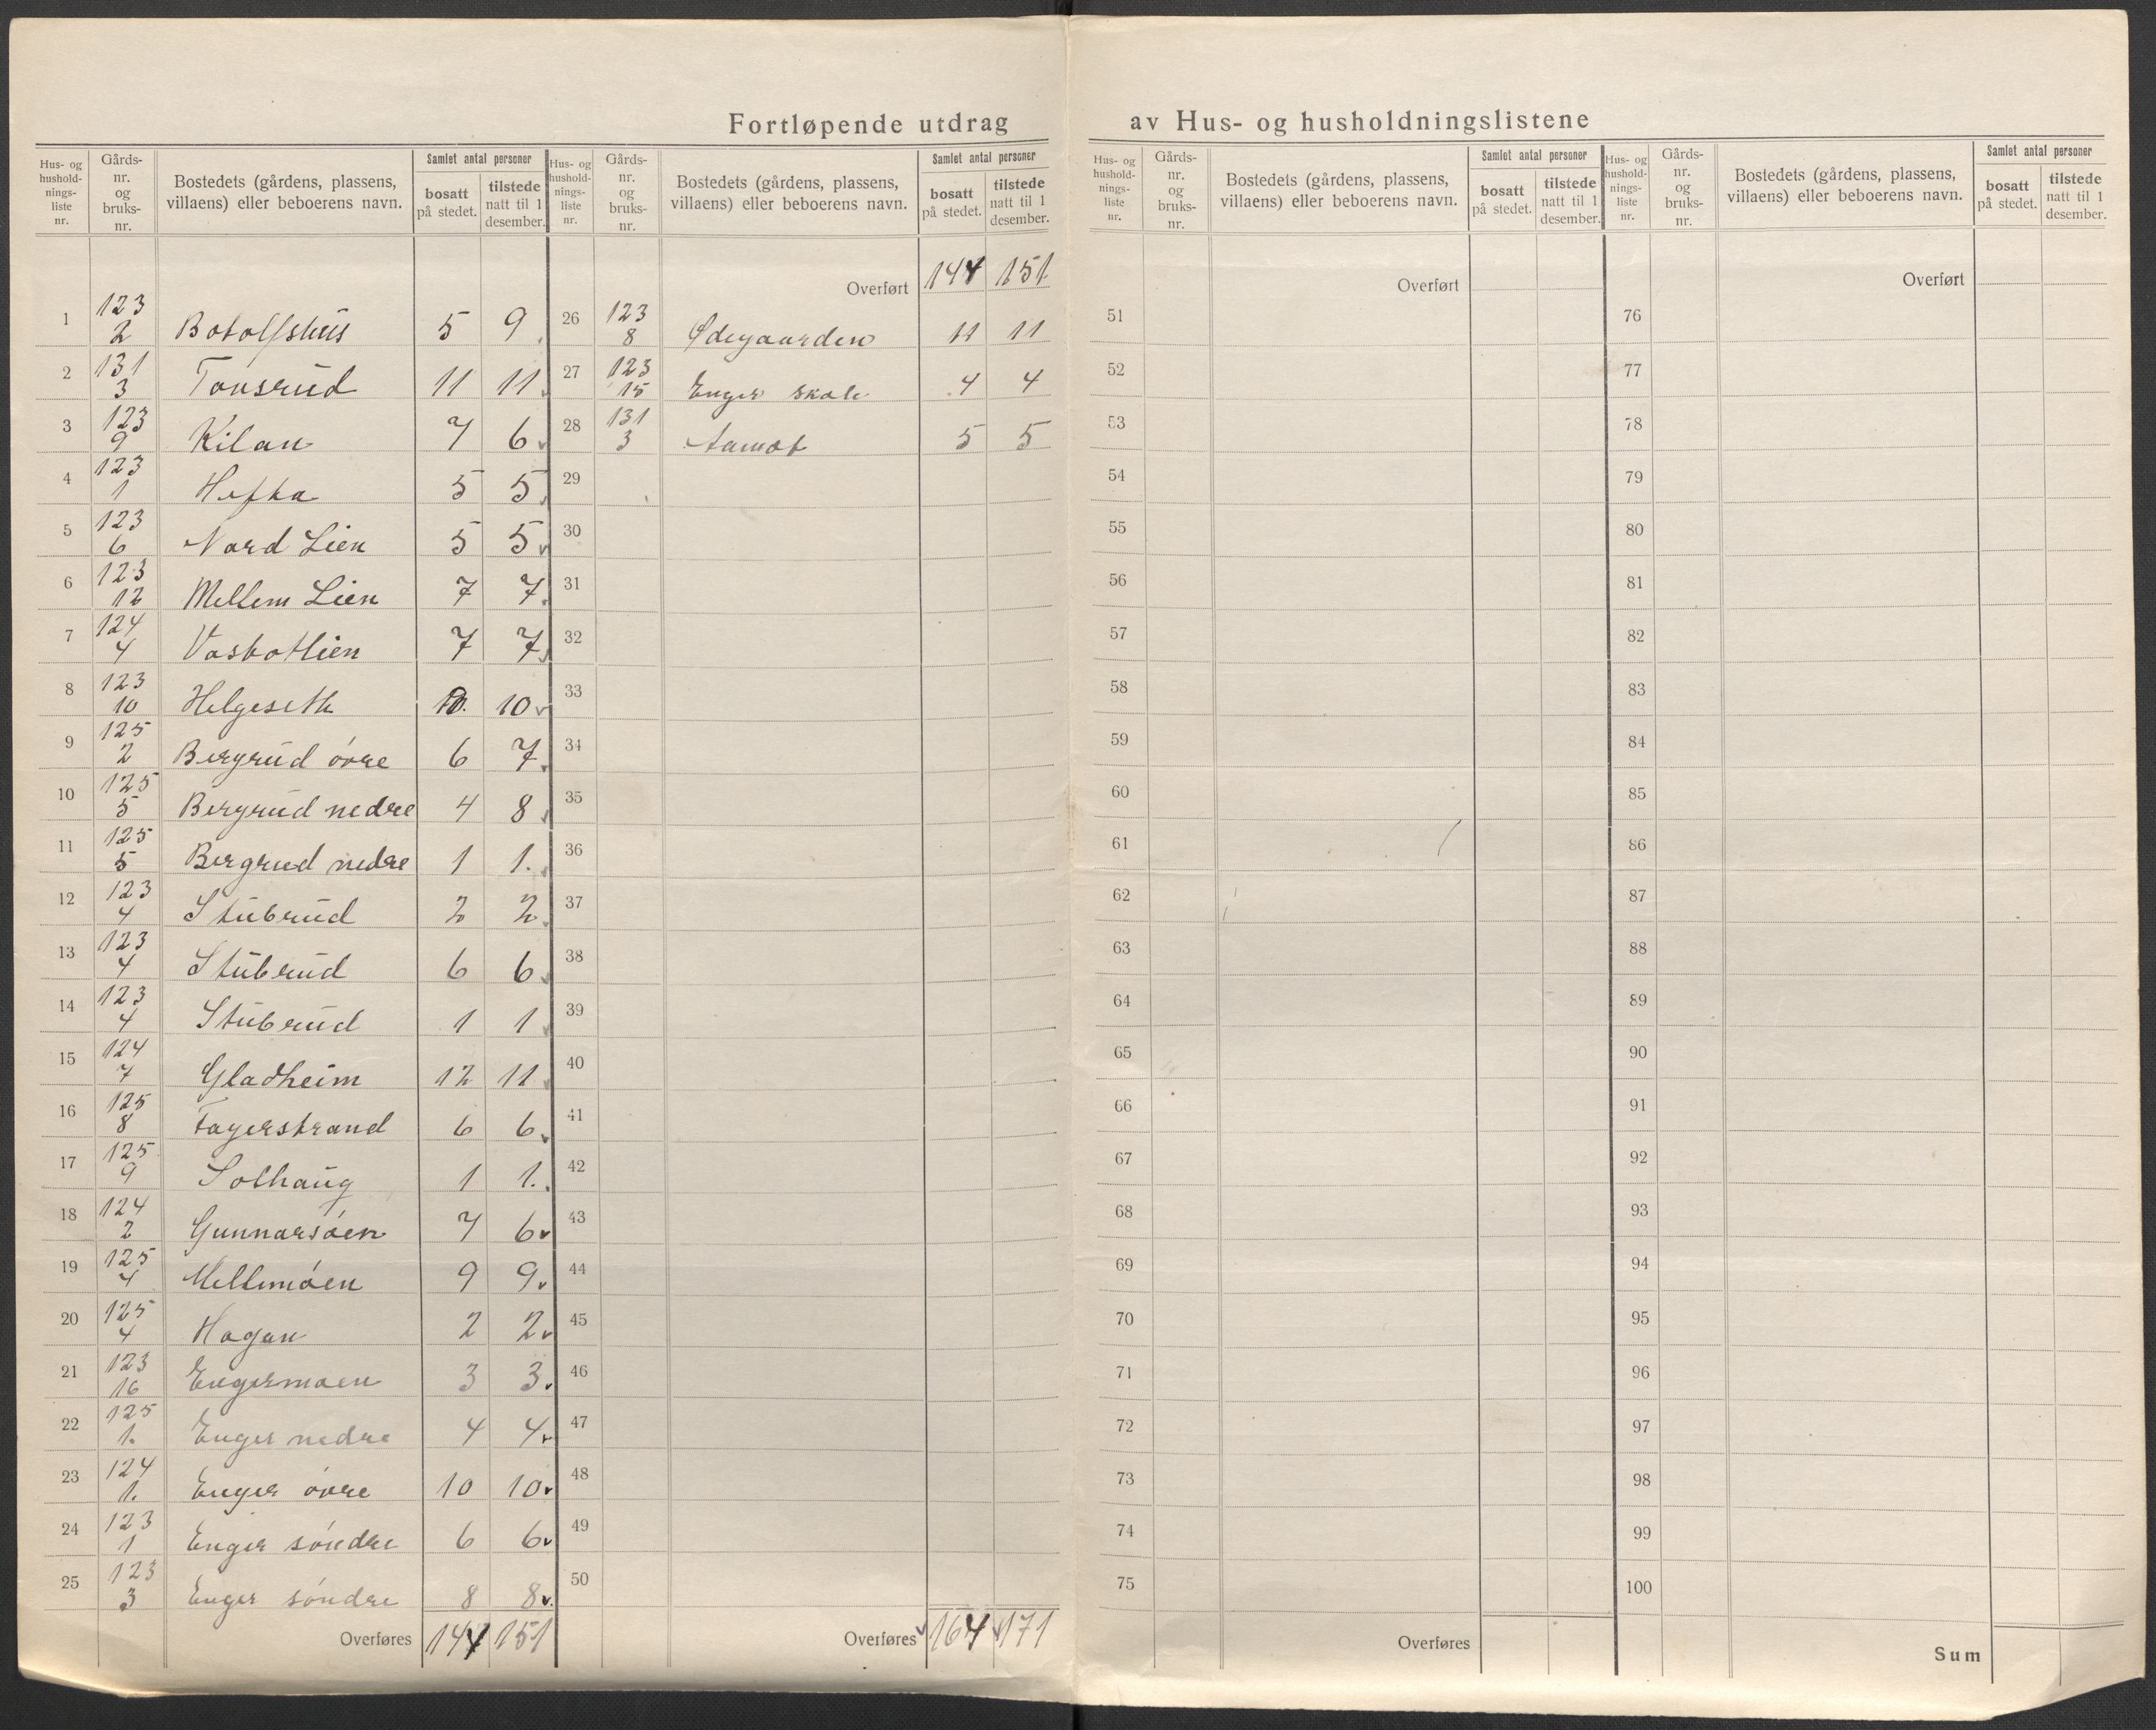 Fortløpende utdrag av Hus- og husholdningslistene
Hus- og husholdnings-liste nr. Gårds-nr. og bruks-nr. Bostedets (gårdens, plassens, villaens) eller beboerens navn. Samlet antal personer bosatt på stedet. tilstede natt til 1 desember.
1 123 2 Botolfshus 5 9
2 131 3 Tonsrud 11 11
3 123 9 Kilan 7 6
4 123 1 Hefta 5 5
5 123 6 Nord Lien 5 5
6 123 12 Mellem Lien 7 7
7 124 4 Vasbotlien 7 7
8 123 10 Helgeseth 10. 10
9 125 2 Bergrud övre 6 7
10 125 5 Bergrud nedre 4 8
11 125 5 Bergrud nedre 1 1.
12 123 4 Stubrud 2 2
13 123 4 Stubrud 6 6
14 123 4 Stubrud 1 1
15 124 7 Gladheim 12 11
16 125 8 Fagerstrand 6 6
17 125 9 Solhaug 1 1.
18 124 2 Gunnarsöen 7 6
19 125 4 Mellemöen 9 9
20 125 4 Hagan 2 2
21 123 16 Engermoen 3 3
22 125 1. Enger nedre 4 4
23 124 1. Enger övre 10 10
24 123 1 Enger söndre 6 6
25 123 3 Enger söndre 8 8
Overføres 144 151
Hus- og husholdnings-liste nr. Gårds-nr. og bruks-nr. Bostedets (gårdens, plassens, villaens) eller beboerens navn. Samlet antal personer bosatt på stedet. tilstede natt til 1 desember.
Overført 144 151
26 123 8 Ødegaarden 11 11
27 123 15 Enger skole 4 4
28 131 3 Aamot 5 5
29
30
31
32
33
34
35
36
37
38
39
40
41
42
43
44
45
46
47
48
49
50
Overføres 164 171
Hus- og husholdnings-liste nr. Gårds-nr. og bruks-nr. Bostedets (gårdens, plassens, villaens) eller beboerens navn. Samlet antal personer bosatt på stedet. tilstede natt til 1 desember.
Overført
51
52
53
54
55
56
57
58
59
60
61
62
63
64
65
66
67
68
69
70
71
72
73
74
75
Overføres
Hus- og husholdnings-liste nr. Gårds-nr. og bruks-nr. Bostedets (gårdens, plassens, villaens) eller beboerens navn. Samlet antal personer bosatt på stedet. tilstede natt til 1 desember.
Overført
76
77
78
79
80
81
82
83
84
85
86
87
88
89
90
91
92
93
94
95
96
97
98
99
100
Sum